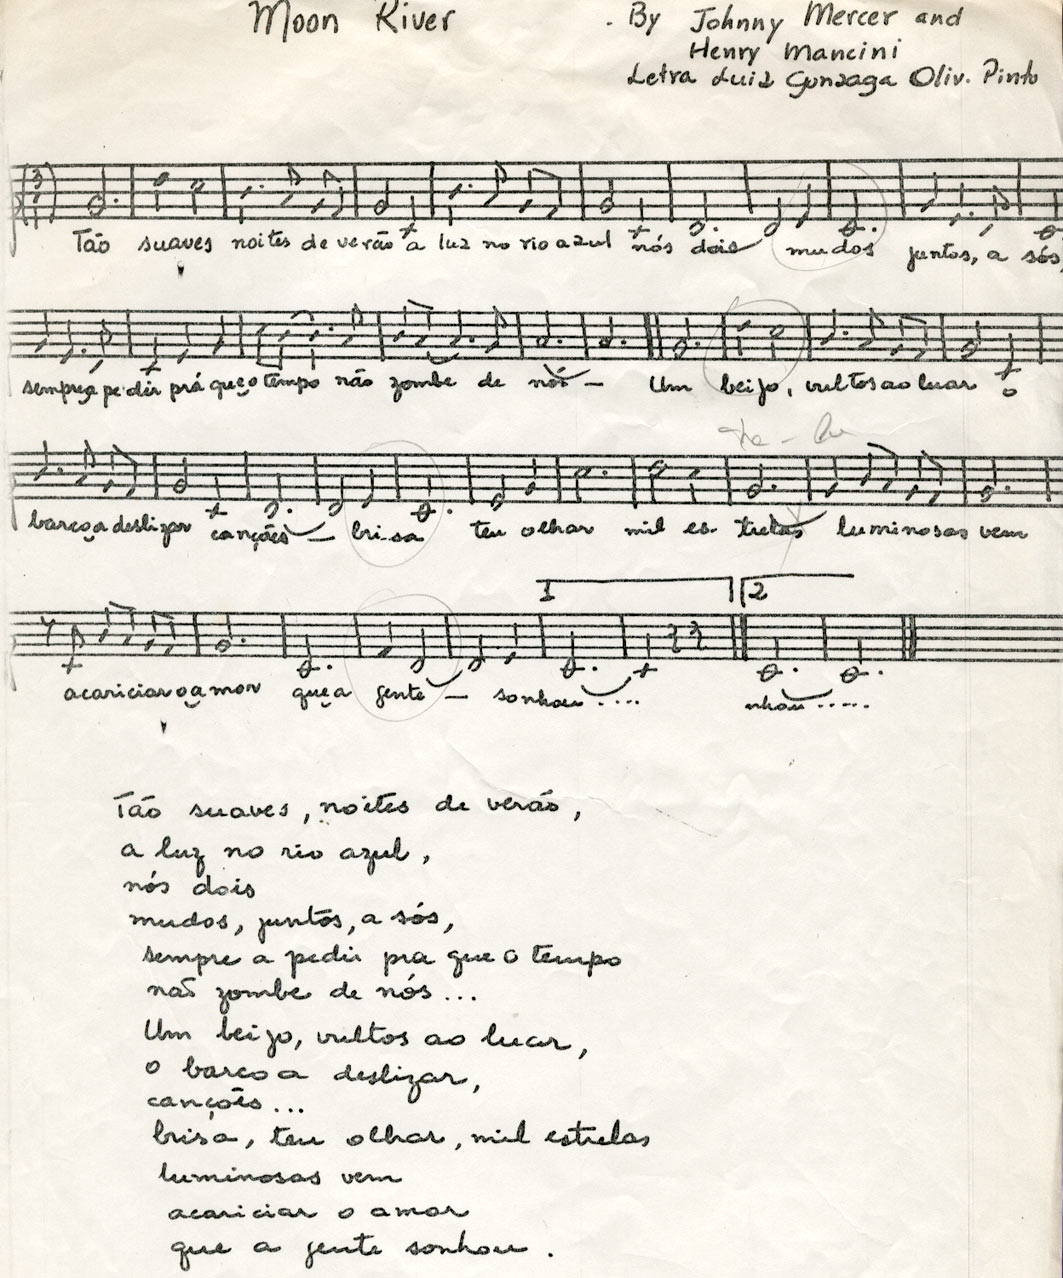 Moon River
. By Johnny Mercer and
Henry Mancini
Letra Luiz Gonzaga Oliv. Pinto
3
4
Tão suaves noites de verão a luz no rio azul nós dois mudos juntos, a sós
sempre a pedir prá que o tempo não zombe de nós — Um beijo, vultos ao luar o
barco a deslizar canções — brisa teu olhar mil es trelas luminosas vem
1 2
acariciar o amor que a gente — sonhou.... nhou.....
Tão suaves, noites de verão,
a luz no rio azul,
nós dois
mudos, juntos, a sós,
sempre a pedir pra que o tempo
não zombe de nós...
Um beijo, vultos ao luar,
o barco a deslizar,
canções...
brisa, teu olhar, mil estrelas
luminosas vem
acariciar o amor
que a gente sonhou.